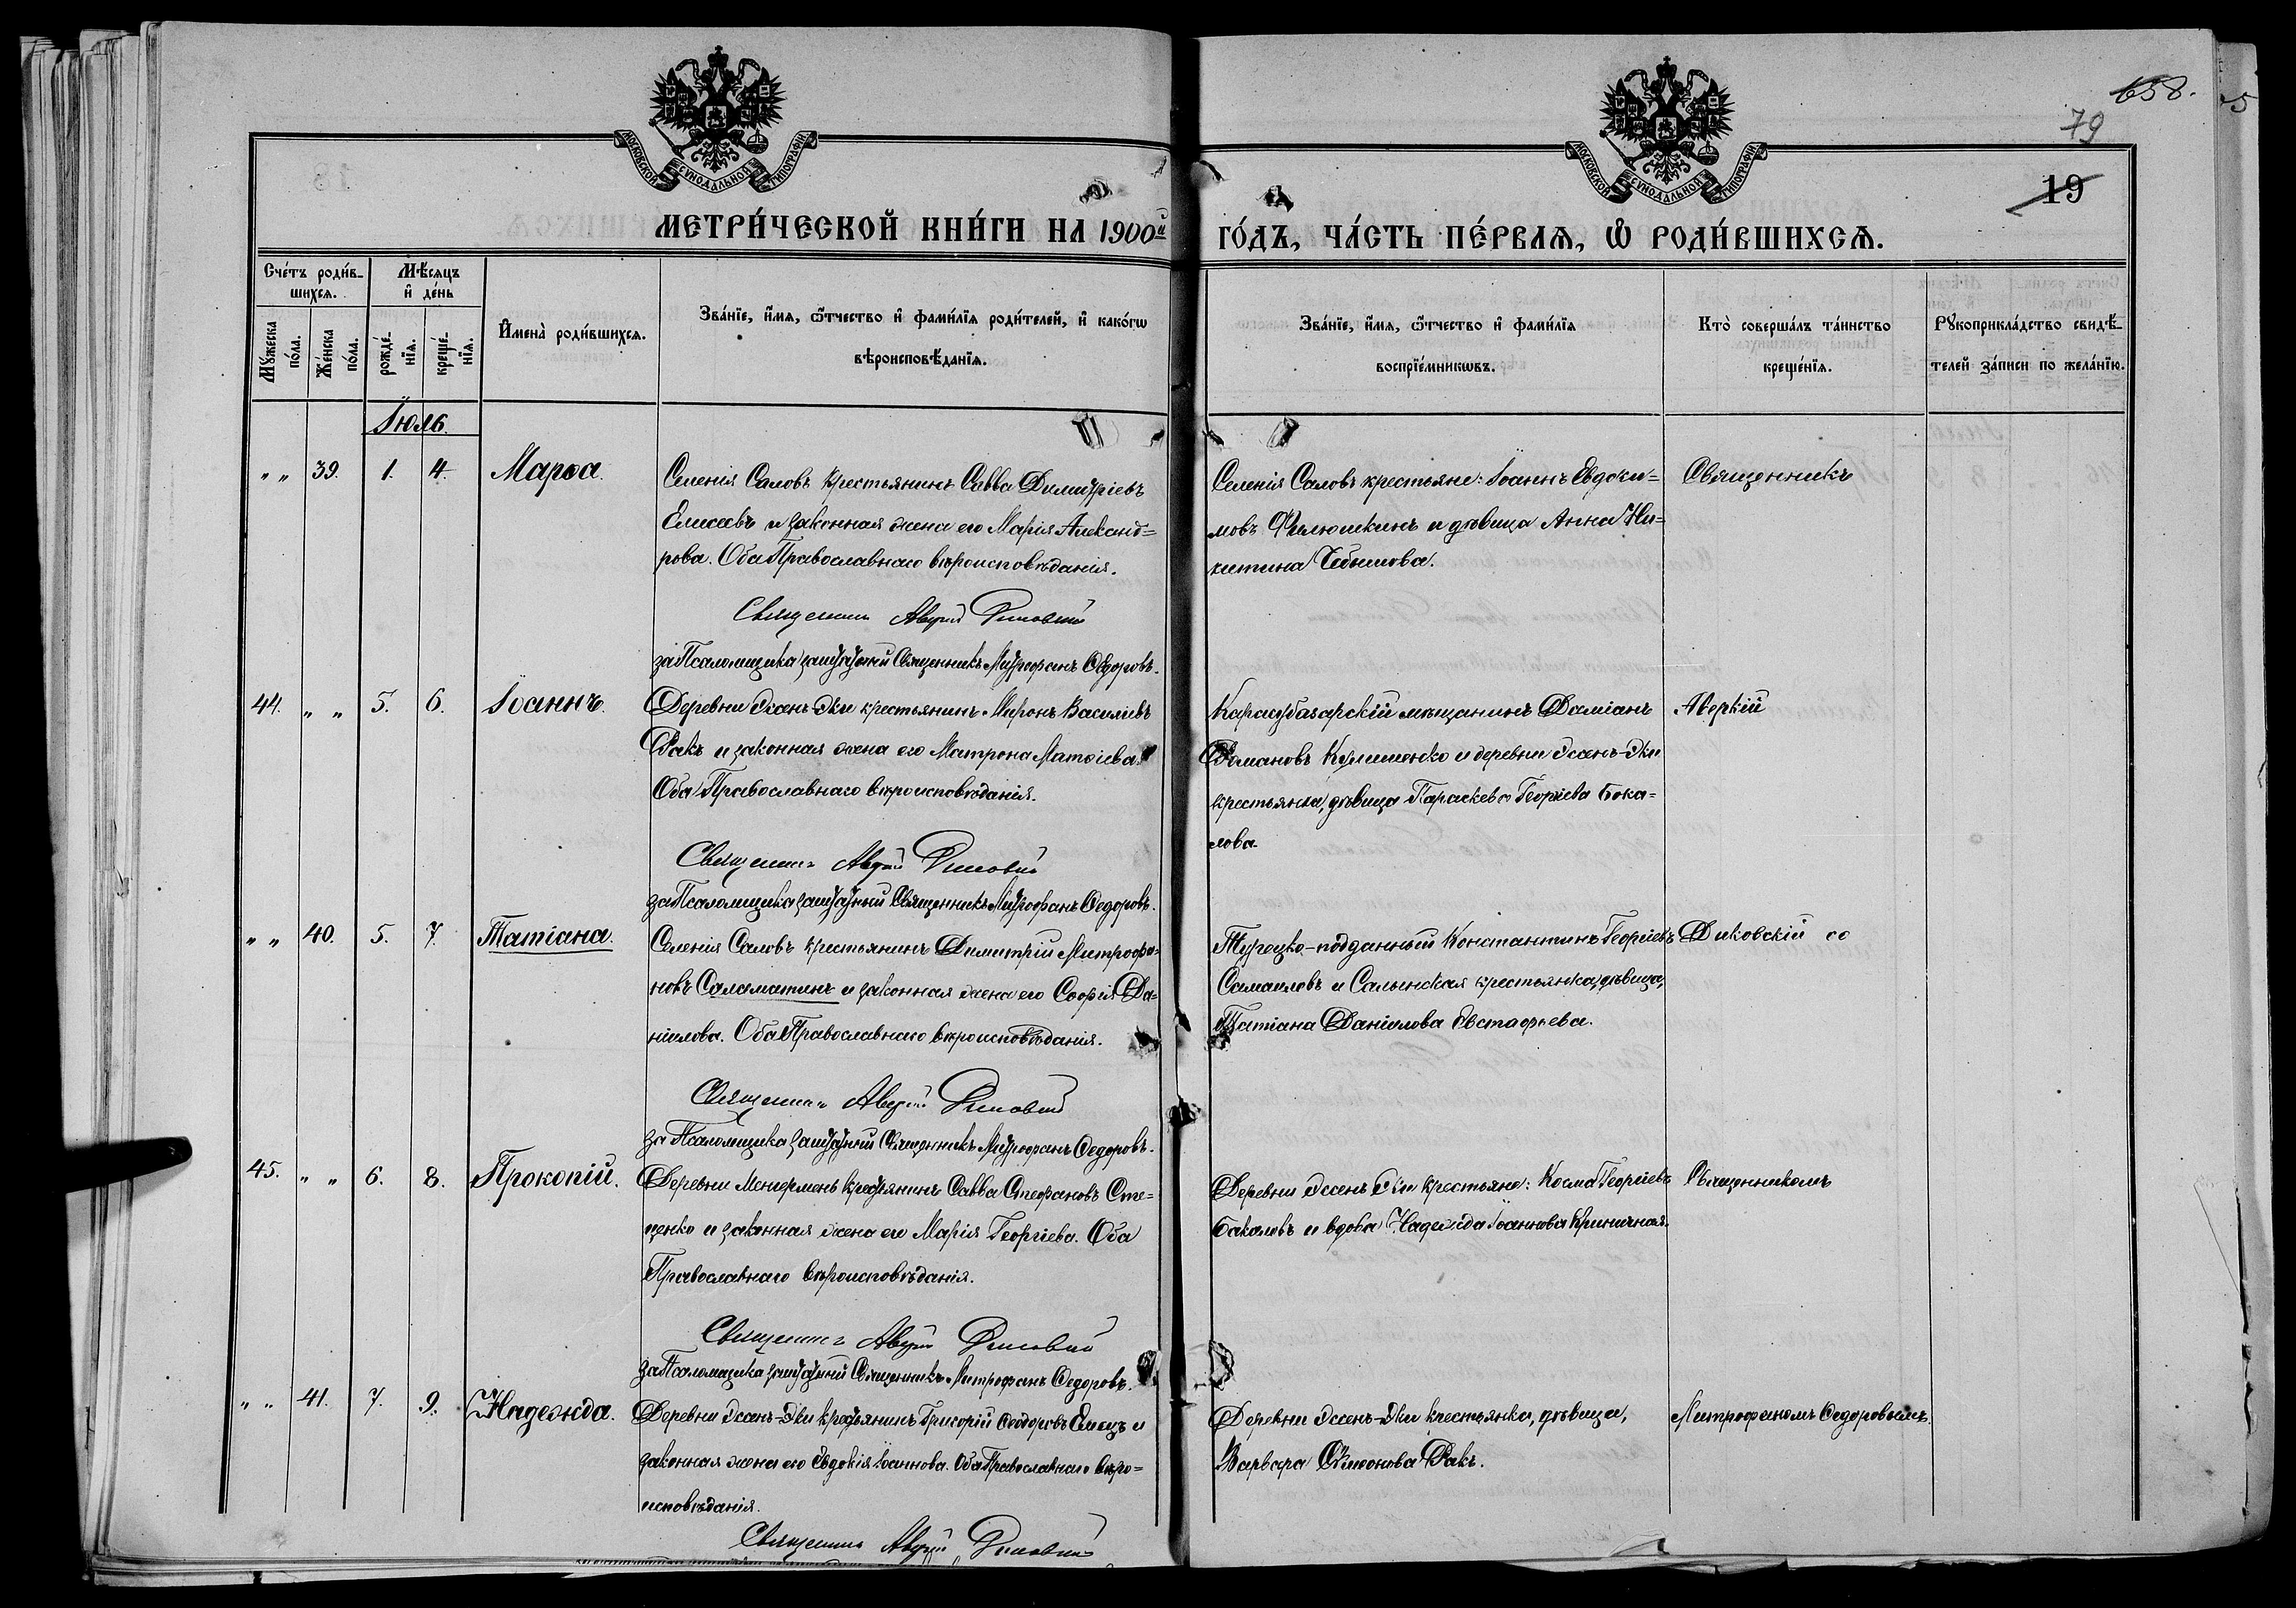 658.
79
19
МОСКОВСКОЙ СѴНОДАЛЬНОЙ ТИПОГРАФІИ
МОСКОВСКОЙ СѴНОДАЛЬНОЙ ТИПОГРАФІИ
МЕТРИ́ЧЕСКОЙ КНИ́ГИ НА 1900й
ГО́ДЪ, ЧА́СТЬ ПЕ́РВАѦ, Ѡ҆ РОДИ́ВШИХСѦ.
Сче́тъ роди́в-
шихсѧ.
Мꙋжеска
по́ла.
Же́нска
по́ла.
Мѣ́сѧцъ
и҆ де́нь
рожде́-
нїѧ.
креще́-
нїѧ.
И҆мена̀ роди́вшихсѧ.
Зва́нїе, и҆́мѧ, ѻ҆́тчество и҆ фами́лїѧ роди́телей, и҆ како́гѡ
вѣроисповѣ́данїѧ.
Зва́нїе, и҆́мѧ, ѻ҆́тчество и҆ фами́лїѧ
воспрїе́мникѡвъ.
Кто̀ соверша́лъ та́инство
креще́нїѧ.
Рꙋкоприкла́дство свидѣ́-
телей за́писи по жела́нїю.
Іюль.
" " 39. 1. 4. Марѳа.
Селенія Саловъ крестьянинъ Савва Димитріевъ
Елисеевъ и законная жена его Марія Александ=
рова. Оба Православнаго вѣроисповѣданія.
Священникъ Аверкій Диковскій
за Псаломщика заштатный Священникъ Митрофанъ Ѳедоровъ.
Селенія Саловъ крестьяне: Іоаннъ Евдоки=
мовъ Филюшкинъ и дѣвица Анна Ни=
китина Чебышова.
Священникъ
44. " " 5. 6. Іоаннъ.
Деревни Эсенъ-Эки крестьянинъ Миронъ Василіевъ
Ракъ и законная жена его Матрона Матѳіева.
Оба Православнаго вѣроисповѣданія.
Священникъ Аверкій Диковскій
за Псаломщика заштатный Священникъ Митрофанъ Ѳедоровъ.
Карасубазарскій мѣщанинъ Даміанъ
Романовъ Кулишенко и деревни Эсенъ-Эки
крестьянка, дѣвица Параскева Георгіева Бока=
лова.
Аверкій
" " 40. 5. 7. Татіана.
Селенія Саловъ крестьянинъ Димитрій Митрофа=
новъ Саламатинъ и законная жена его Софія Да=
ніилова. Оба Православнаго вѣроисповѣданія.
Священникъ Аверкій Диковскій
за Псаломщика заштатный Священникъ Митрофанъ Ѳедоровъ.
Турецко-подданный Константинъ Георгіевъ
Самаиловъ и Салынская крестьянка, дѣвица,
Татіана Даніилова Евстафьева.
Диковскій со
45. " " 6. 8. Прокопій.
Деревни Менгермень крестьянинъ Савва Стефановъ Сте=
ценко и законная жена его Марія Георгіева. Оба
Православнаго вѣроисповѣданія.
Священникъ Аверкій Диковскій
за Псаломщика заштатный Священникъ Митрофанъ Ѳедоровъ.
Деревни Эссенъ Эки крестьяне: Косма Георгіевъ
Бакаловъ и вдова Надежда Іоаннова Криничная.
Священникомъ
" " 41. 7. 9. Надежда.
Деревни Эссенъ-Эки крестьянинъ Григорій Ѳеодоровъ Емецъ и
законная жена его Евдокія Іоаннова. Оба Православнаго вѣро=
исповѣданія.
Священникъ Аверкій Диковскій
Деревни Эссенъ-Эки крестьянка, дѣвица,
Варвара Симеонова Ракъ.
Митрофаномъ Ѳедоровымъ.